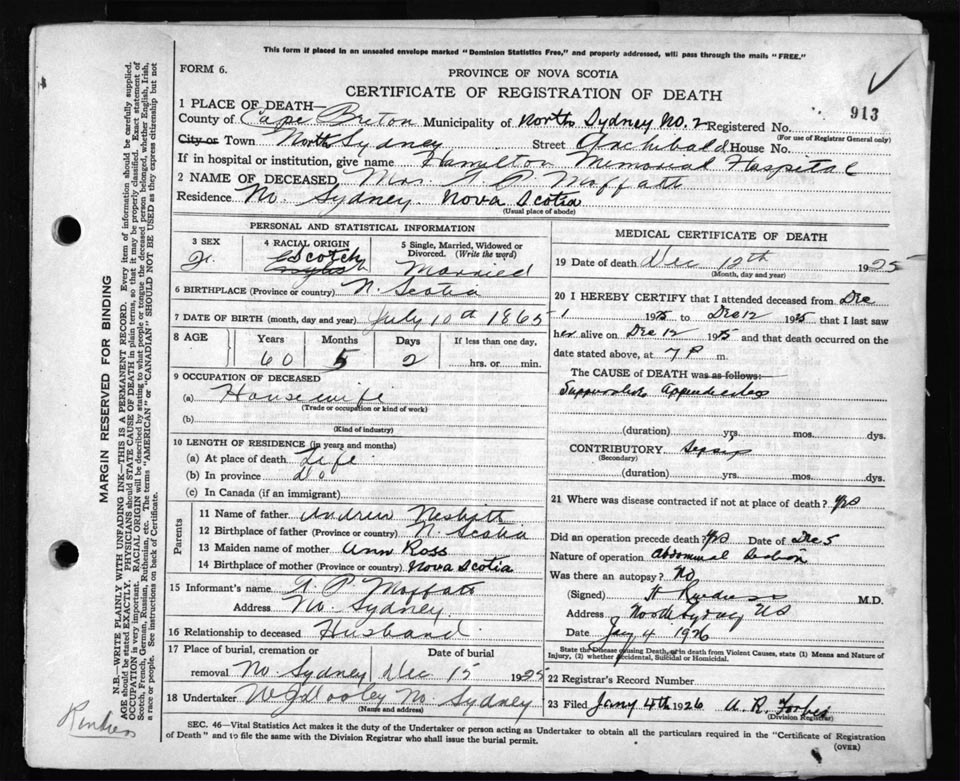 This form if placed in an unsealed envelope marked "Dominion Statistics Free," and properly addressed, will pass through the mails "FREE."
FORM 6.
PROVINCE OF NOVA SCOTIA
CERTIFICATE OF REGISTRATION OF DEATH
913
1 PLACE OF DEATH—
County of Cape Breton Municipality of North Sydney No. 2 Registered No.
(For use of Registrar General only)
City or Town North Sydney Street Archibald House No.
If in hospital or institution, give name Hamilton Memorial Hospital
2 NAME OF DECEASED Mrs. P Moffatt
Residence No. Sydney Nova Scotia
(Usual place of abode)
PERSONAL AND STATISTICAL INFORMATION
3 SEX
4 RACIAL ORIGIN Scotch
5 Single, Married, Widowed or Divorced. (Write the word) Married
6 BIRTHPLACE (Province or country) N. Scotia
7 DATE OF BIRTH (month, day and year) July 10th 1865
8 AGE Years Months Days If less than one day,
60 5 2 hrs. or min.
9 OCCUPATION OF DECEASED
(a) Housewife
(Trade or occupation or kind of work)
(b)
(Kind of industry)
10 LENGTH OF RESIDENCE (in years and months)
(a) At place of death Life
(b) In province Do
(c) In Canada (if an immigrant)
Parents
11 Name of father Andrew Nesbitt
12 Birthplace of father (Province or country) N. Scotia
13 Maiden name of mother Ann Ross
14 Birthplace of mother (Province or country) Nova Scotia
15 Informant's name P Moffatt
Address No. Sydney
16 Relationship to deceased Husband
17 Place of burial, cremation or removal Date of burial
No Sydney Dec 15 1925
18 Undertaker No. Sydney
(Name and address)
MEDICAL CERTIFICATE OF DEATH
19 Date of death Dec 12th 1925
(Month, day and year)
20 I HEREBY CERTIFY that I attended deceased from Dec
1 1925 to Dec 12 1925 that I last saw
her alive on Dec 12 1925 and that death occurred on the
date stated above, at 7 P m.
The CAUSE of DEATH was as follows:
Suppurative Appendicitis
(duration) yrs. mos. dys.
CONTRIBUTORY Sepsis
(Secondary)
(duration) yrs. mos. dys.
21 Where was disease contracted if not at place of death? yes
Did an operation precede death? yes Date of Dec 5
Nature of operation Abdominal
Was there an autopsy? No
(Signed) M.D.
Address North Sydney
Date Jany 4 1926
State the Disease causing Death, or in death from Violent Causes, state (1) Means and Nature of
Injury, (2) whether Accidental, Suicidal or Homicidal.
22 Registrar's Record Number
23 Filed Jany 4th 1926 A. R. Forbes
(Division Registrar)
SEC. 46—Vital Statistics Act makes it the duty of the Undertaker or person acting as Undertaker to obtain all the particulars required in the "Certificate of Registration
of Death" and to file the same with the Division Registrar who shall issue the burial permit.
(OVER)
MARGIN RESERVED FOR BINDING
N.B.—WRITE PLAINLY WITH UNFADING INK—THIS IS A PERMANENT RECORD. Every item of information should be carefully supplied.
AGE should be stated EXACTLY. PHYSICIANS should STATE CAUSE OF DEATH in plain terms, so that it may be properly classified. Exact statement of
OCCUPATION is very important. RACIAL ORIGIN will be described by stating to what people or tongue the deceased person belonged, whether English, Irish,
Scotch, French, German, Russian, Ruthenian, etc. The terms "AMERICAN" or "CANADIAN" SHOULD NOT BE USED as they express citizenship but not
a race or people. See instructions on back of Certificate.